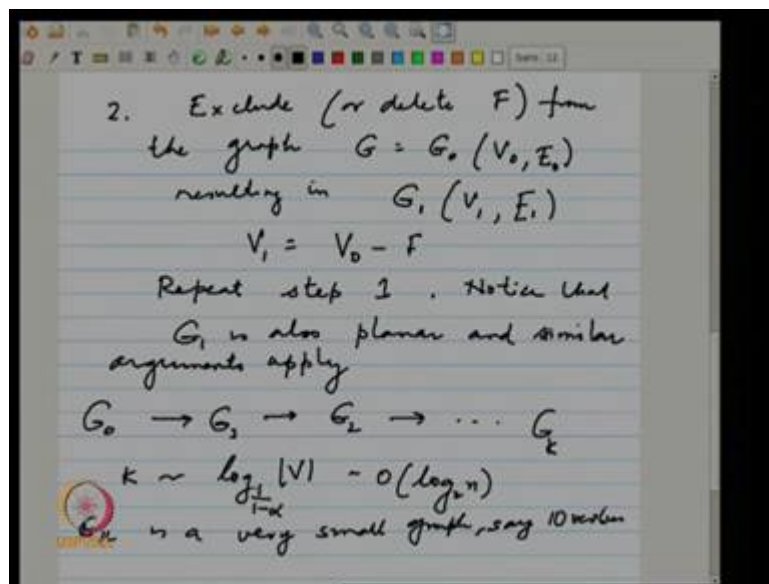 2. Exclude (or delete F) from
the graph G = G₀ (V₀, E₀)
resulting in G₁ (V₁, E₁)
V₁ = V₀ - F
Repeat step 1. Notice that
G₁ is also planar and similar
arguments apply
G₀ → G₁ → G₂ → ... G_k
k ~ log_{1/(1-α)} |V| ~ O(log₂ n)
is a very small graph, say 10 vertices